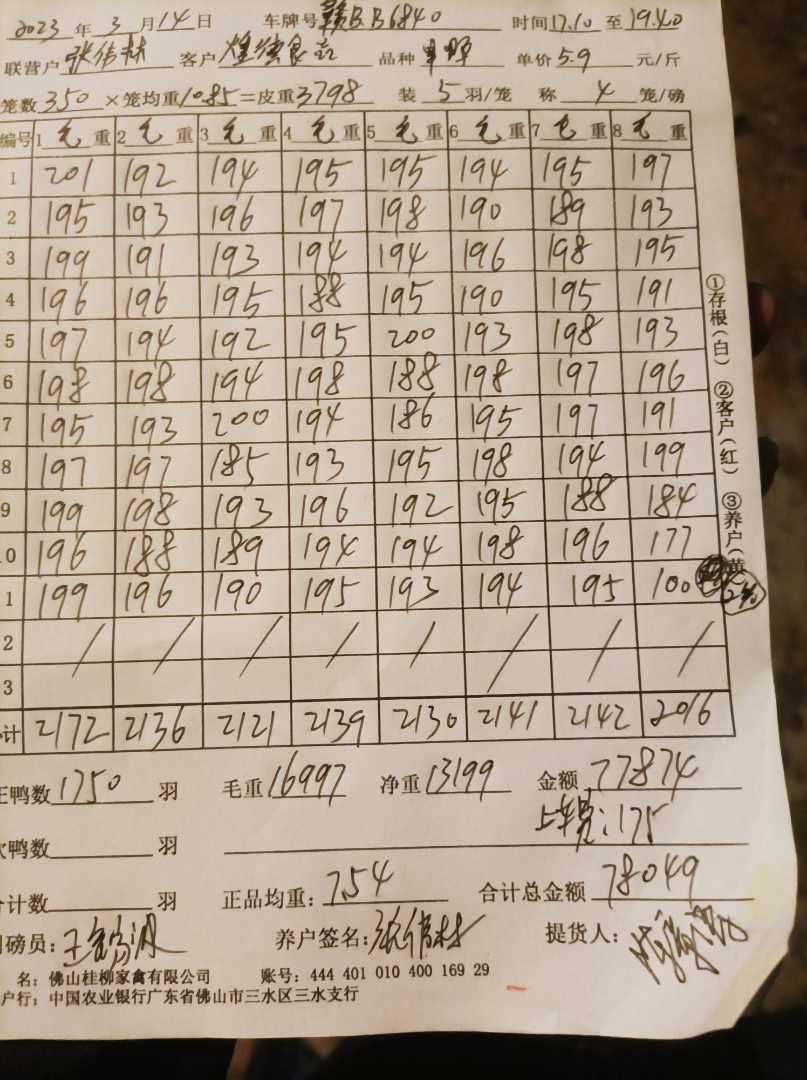 2023 年 3 月 14 日 车牌号 赣BB6840 时间 17.10 至 19.40
联营户 张伟林 客户 品种 单价 5.9 元/斤
笼数 350 ×笼均重 10.85 =皮重 3798 装 5 羽/笼 称 4 笼/磅
编号 1 毛 重 2 毛 重 3 毛 重 4 毛 重 5 毛 重 6 毛 重 7 毛 重 8 毛 重
1 201 192 194 195 195 194 195 197
2 195 193 196 197 198 190 189 193
3 199 191 193 194 194 196 198 195
4 196 196 195 188 195 190 195 191
5 197 194 192 195 200 193 198 193
6 198 198 194 198 188 198 197 196
7 195 193 200 194 186 195 197 191
8 197 197 185 193 195 198 194 199
9 199 198 193 196 192 195 188 184
0 196 188 189 194 194 198 196 177
1 199 196 190 195 193 194 195 100
2 / / / / / / / /
3
计 2172 2136 2121 2139 2130 2141 2142 2016
①存根(白) ②客户(红) ③养户(黄
正鸭数 1750 羽 毛重 16997 净重 13199 金额 77874
上车费:175
次鸭数 羽
合计数 羽 正品均重: 7.54 合计总金额 78049
司磅员: 养户签名: 张伟林 提货人:
名: 佛山桂柳家禽有限公司 账号: 444 401 010 400 169 29
户行: 中国农业银行广东省佛山市三水区三水支行